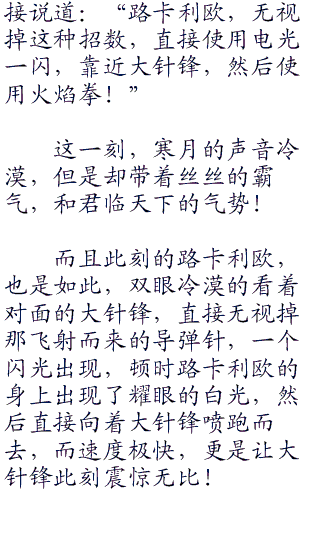 接说道：“路卡利欧，无视
掉这种招数，直接使用电光
一闪，靠近大针锋，然后使
用火焰拳！”
这一刻，寒月的声音冷
漠，但是却带着丝丝的霸
气，和君临天下的气势！
而且此刻的路卡利欧，
也是如此，双眼冷漠的看着
对面的大针锋，直接无视掉
那飞射而来的导弹针，一个
闪光出现，顿时路卡利欧的
身上出现了耀眼的白光，然
后直接向着大针锋喷跑而
去，而速度极快，更是让大
针锋此刻震惊无比！